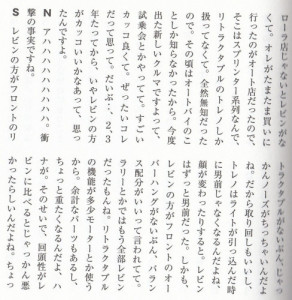 ローラ店じゃないとレビンがな
くて。オレがたまたま買いに
行ったのがオート店だったので、
そこはスプリンター系列なんで、
リトラクタブルのトレノしか
扱ってなくて。全然無知だった
ので。その頃はオートバイのこ
としか知らなかったから。今度
出た新しいクルマですよって、
試乗会とかやってて。すごい
カッコ良くて。ぜったいコレ
だって思って。だいぶ…2、3
年たってから、いやレビンの方
がカッコいいかなあって、思っ
たんですよ。
N アハハハハハハハ。衝
撃の事実ですね。
S レビンの方がフロントのリ
トラクタブルがないぶん、じゃっ
かんノーズがちっちゃいんだよ
ね。だから取り回しもいいし、
トレノはライトが引っ込んだ時
に男前じゃなくなるんだよね、
顔が変わったりすると。レビン
はずっと男前だった。しかも、
レビンの方がフロントのオー
バーハングがないぶん、バラン
ス配分がいいって言われてて。
ラリーとかではもう全部レビン
だったもんね。リトラクタブル
の機能が多少モーターとか使う
から。余計なパーツもあるし、
ちょっと重たくなるんだよ、ハ
ナが。そのせいで、回頭性がレ
ビンに比べるとじゃっかん悪
かったらしいんだよね。ちょっ